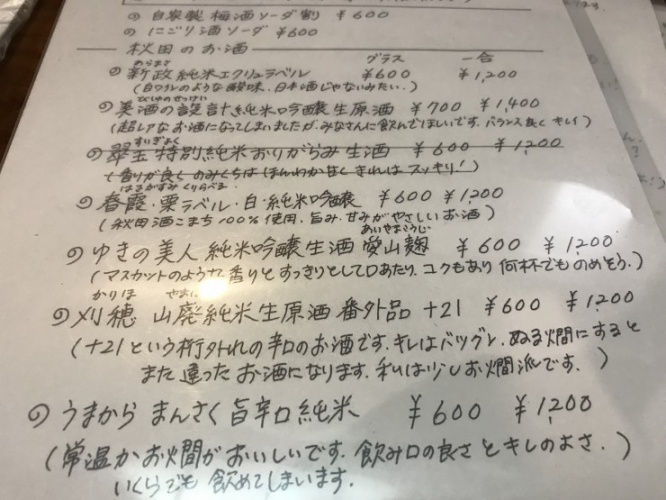 の 自家製 梅酒ソーダ割 ¥600
の にごり酒ソーダ ¥600
秋田のお酒
グラス 一合
あらまさ
の 新政 純米エクリュラベル ¥600 ¥1,200
(白ワインのような酸味、日本酒じゃないみたい。)
びしゅのせっけい
の 美酒の設計 純米吟醸生原酒 ¥700 ¥1,400
(超レアなお酒になってしまいましたが、みなさんに飲んでほしいです。バランス良く キレイ)
すいぎょく
の 翠玉 特別純米おりがらみ生酒 ¥600 ¥1,200
(香りが良く のみくちは ほんわか甘く きれいは スッキリ!)
はるがすみ くりらべる
の 春霞・栗ラベル・白・純米吟醸 ¥600 ¥1,200
(秋田酒こまち100%使用、旨み、甘みがやさしいお酒)
あいやまこうじ
の ゆきの美人 純米吟醸生酒 愛山麹 ¥600 ¥1,200
(マスカットのような香りとすっきりとして口あたり、コクもあり 何杯でものめそう。)
かりほ やまは
の 刈穂 山廃純米生原酒 番外品 +21 ¥600 ¥1,200
(+21という桁外れの辛口のお酒です。キレはバツグン、ぬる燗にすると
また違ったお酒になります。私は少しお燗派です。)
の うまから まんさく 旨辛口純米 ¥600 ¥1,200
(常温かお燗がおいしいです。飲み口の良さとキレのよさ。)
いくらでも飲めてしまいます。